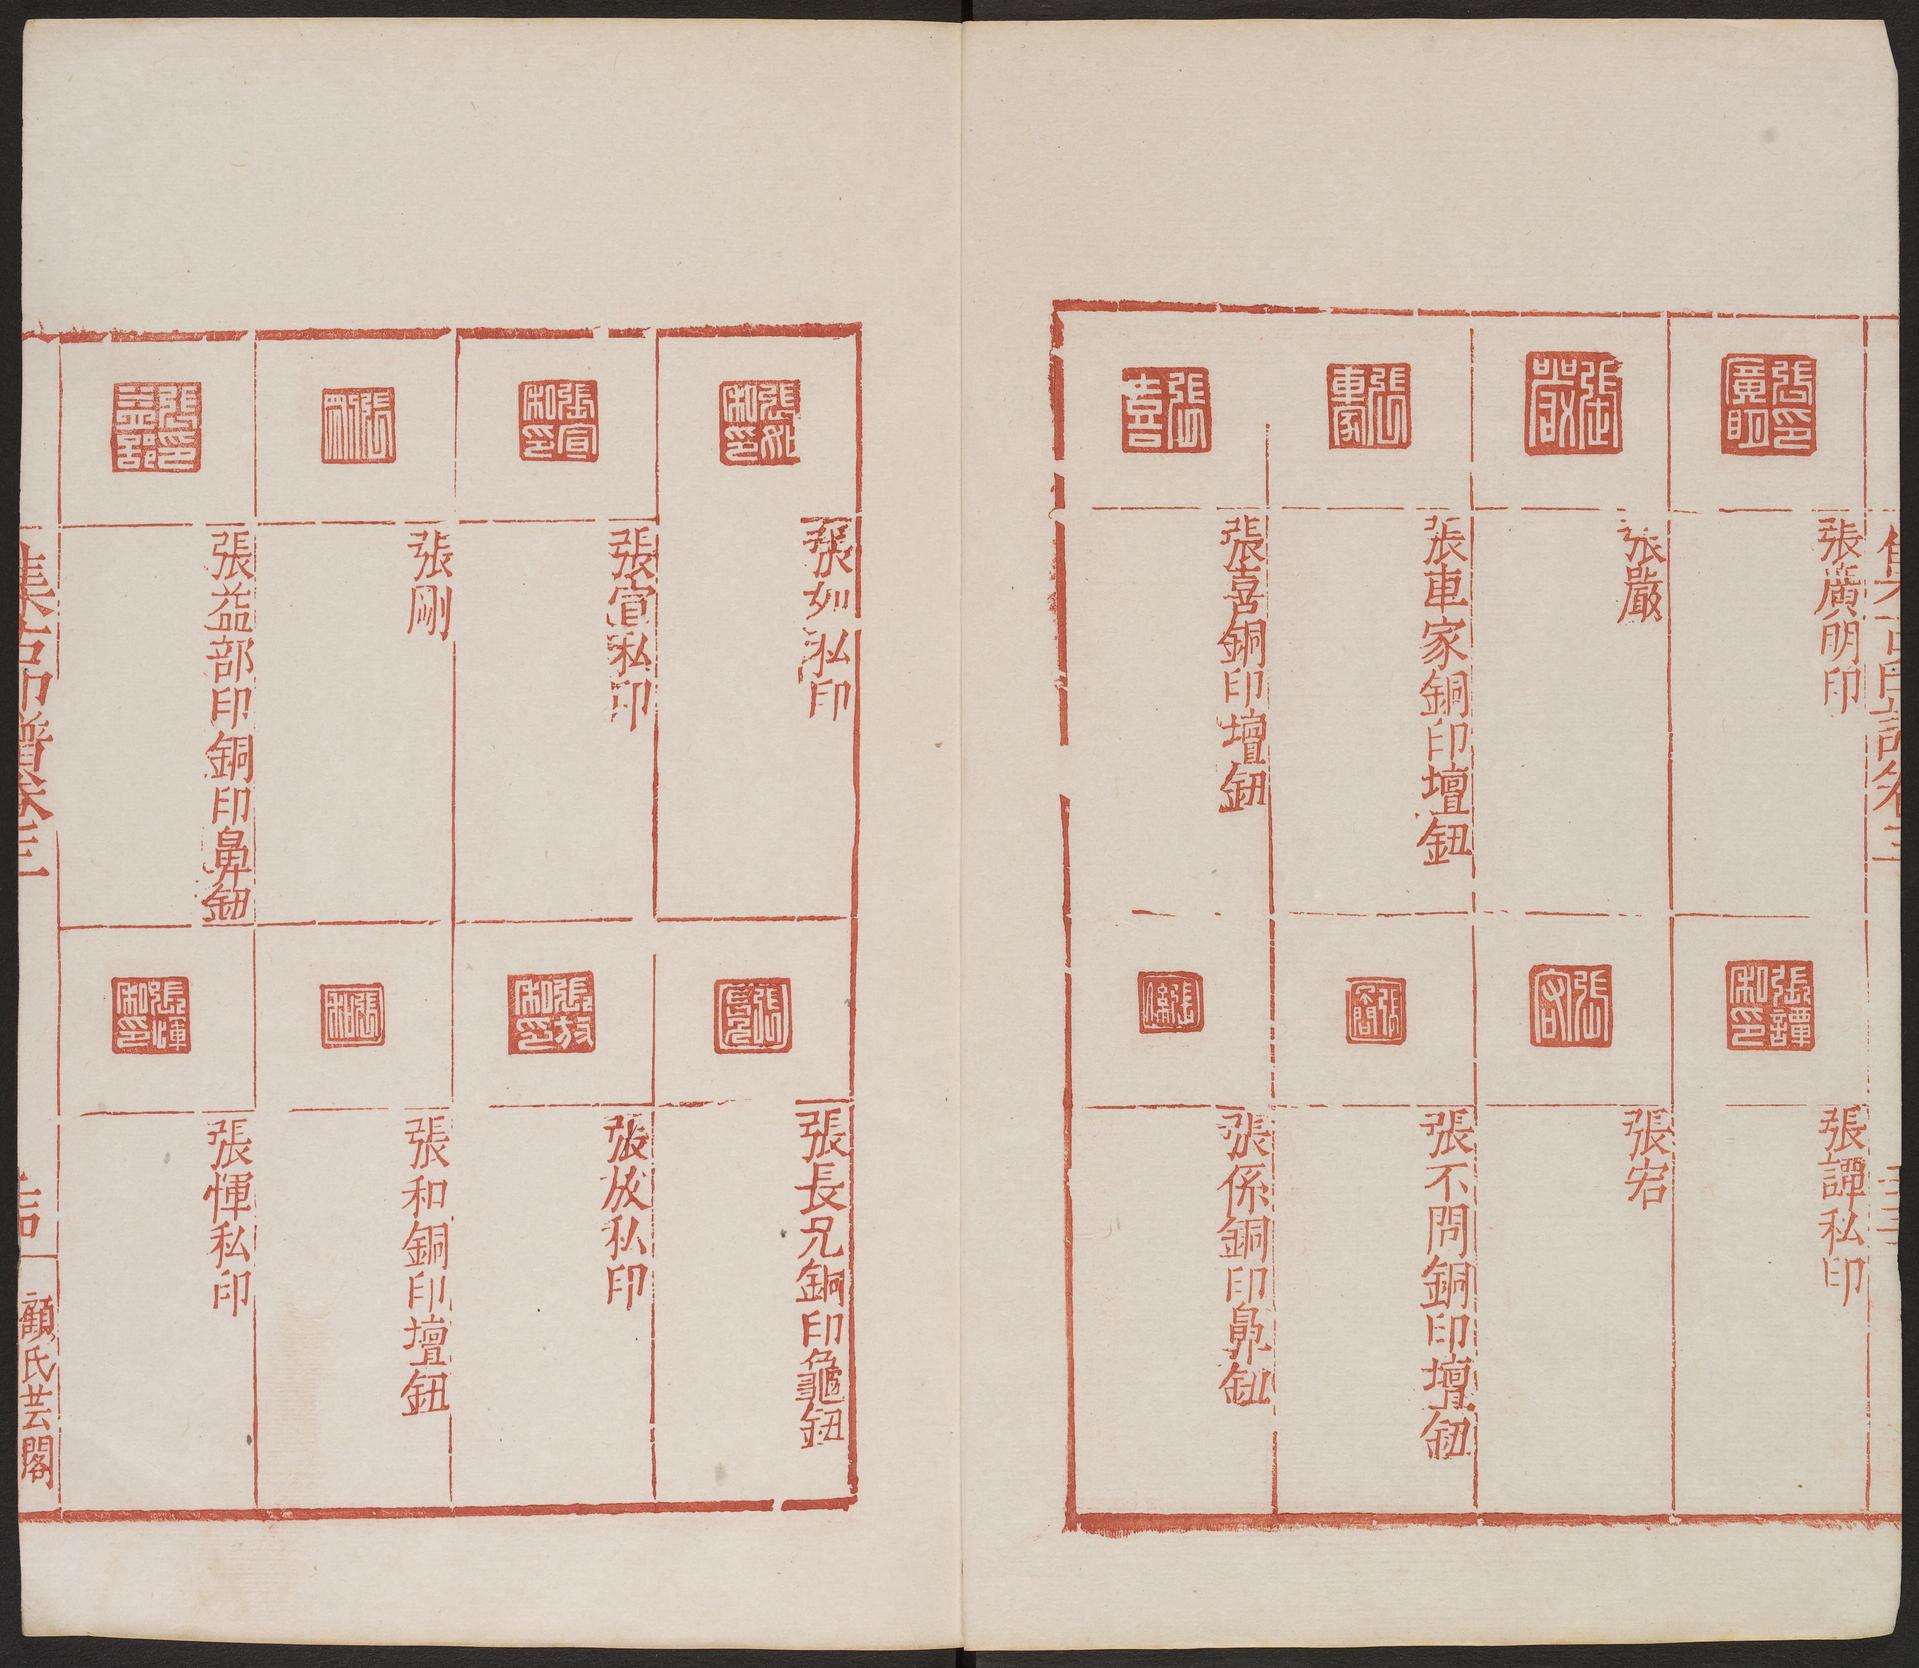 張廣明印
張譚私印
張嚴
張宕
張車家銅印壇鈕
張不問銅印壇鈕
張喜銅印壇鈕
張係銅印鼻鈕
張如私印
張長兄銅印龜鈕
張宣私印
張放私印
張剛
張和銅印壇鈕
張益部印銅印鼻鈕
張惲私印
集古印譜卷三
顧氏芸閣